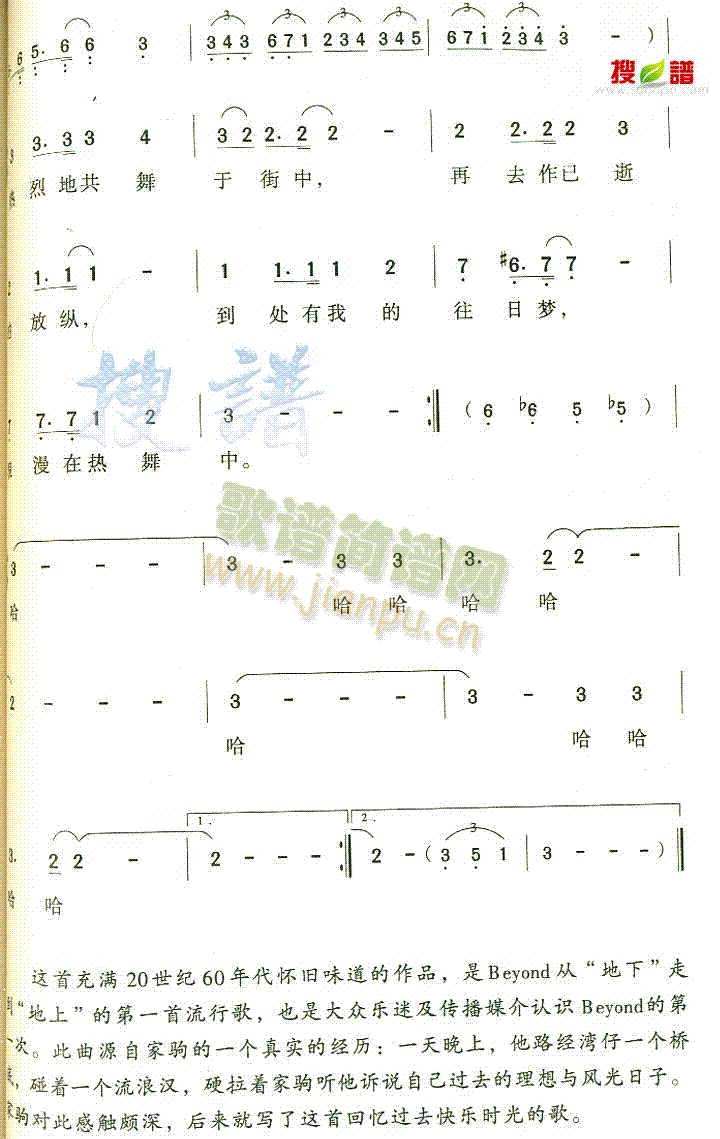 5. 6 6 3 3 4 3 6 7 1 2 3 4 3 4 5 6 7 1 2 3 4 3 - )
搜谱
3. 3 3 4 3 2 2. 2 2 - 2 2. 2 2 3
烈地共 舞 于 街中, 再 去作已 逝
1. 1 1 - 1 1. 1 1 2 7 #6. 7 7 -
放纵, 到 处有我 的 往 日梦,
搜谱
7. 7 1 2 3 - - - :‖ ( 6 b6 5 b5 )
漫在热 舞 中。
歌谱简谱网
www.jianpu.cn
3 - - - 3 - 3 3 3. 2 2 -
哈 哈 哈 哈 哈
2 - - - 3 - - - 3 - 3 3
哈 哈 哈
1. 2.
3. 2 2 - 2 - - - :‖ 2 - ( 3 5 1 3 - - - )
哈 哈
这首充满20世纪60年代怀旧味道的作品，是Beyond从“地下”走
到“地上”的第一首流行歌，也是大众乐迷及传播媒介认识Beyond的第
一次。此曲源自家驹的一个真实的经历：一天晚上，他路经湾仔一个桥
底，碰着一个流浪汉，硬拉着家驹听他诉说自己过去的理想与风光日子。
家驹对此感触颇深，后来就写了这首回忆过去快乐时光的歌。